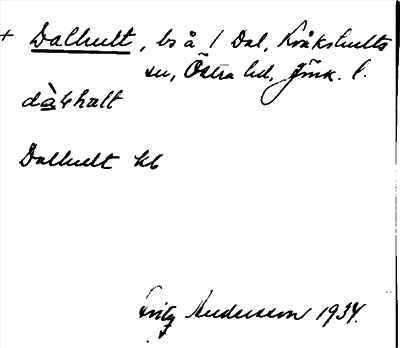 + Dalhult, bs å / Dal, Kråkshults
sn, Östra hd, Jönk. l.
dà4hœlt
Dalhult kb
Fritz Andersson 1934.